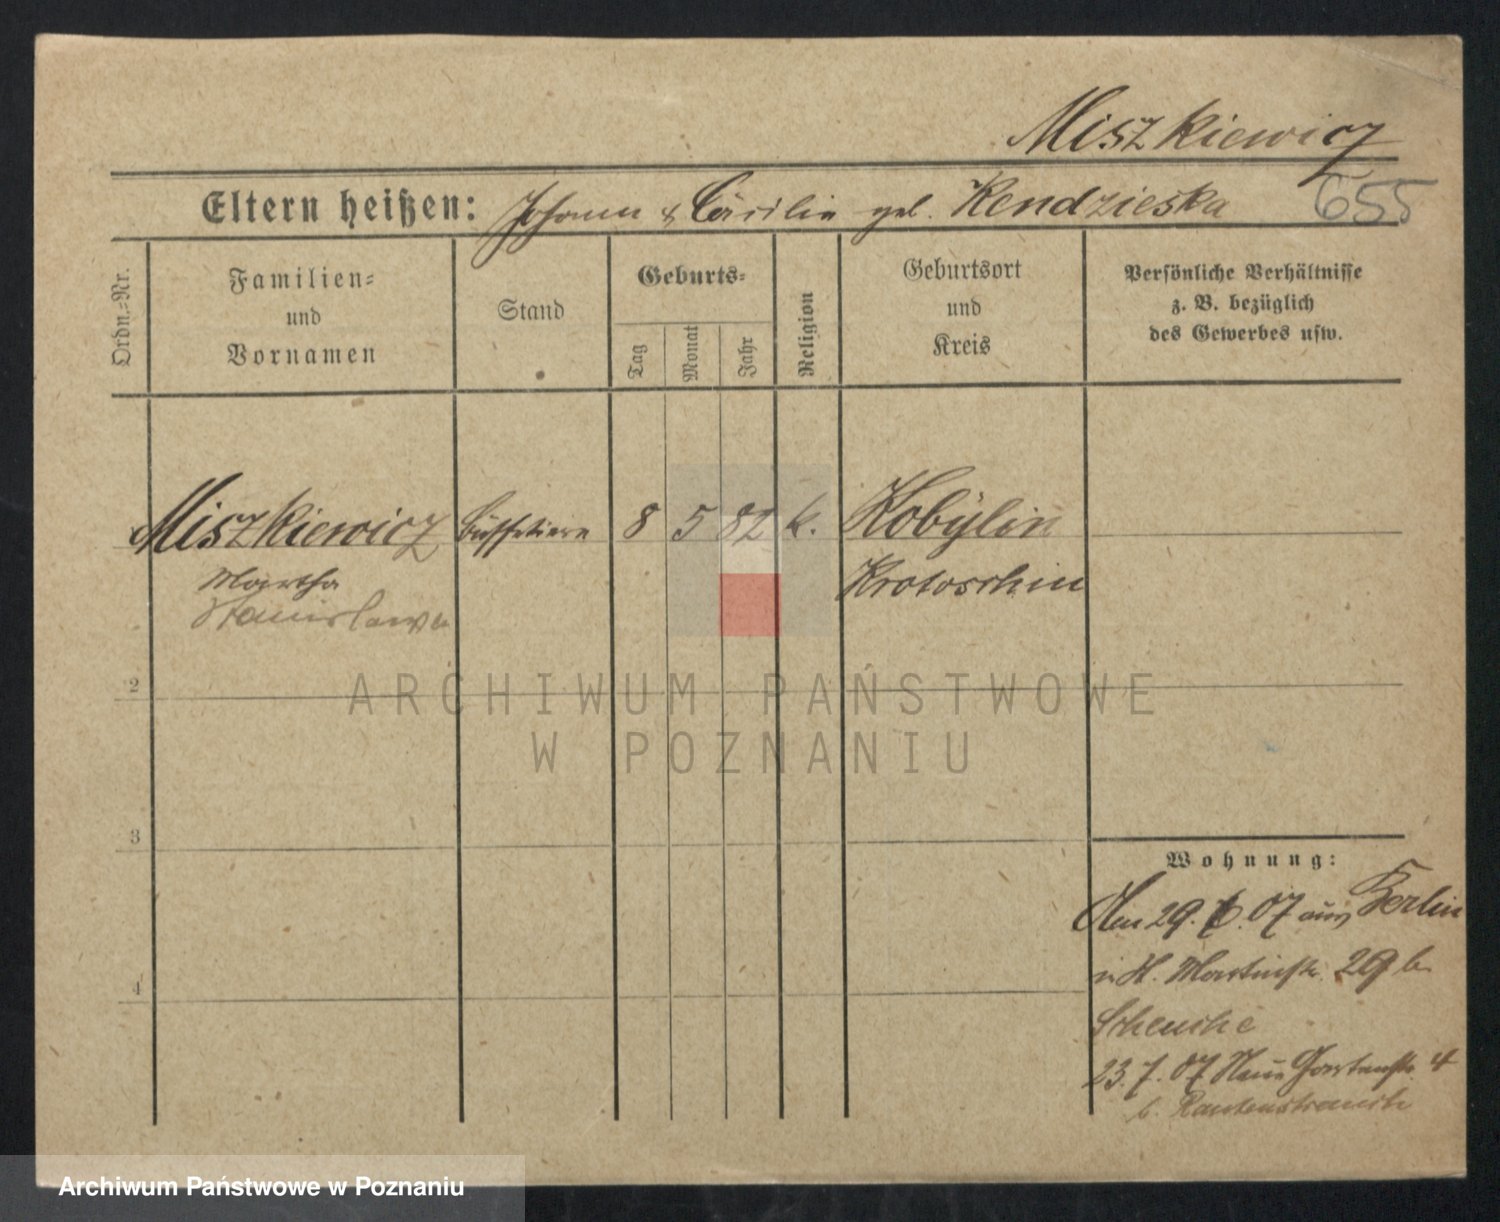 Miszkiewicz
Eltern heißen: Johann & Cäcilie geb. Kendzieska
655
Ordn.-Nr.
Familien-
und
Vornamen
Stand
Geburts-
Tag
Monat
Jahr
Religion
Geburtsort
und
Kreis
Persönliche Verhältnisse
z. B. bezüglich
des Gewerbes usw.
Miszkiewicz Büffetiere 8 5 82 k. Kobylin
Martha Krotoschin
Stanislawa
2
ARCHIWUM PAŃSTWOWE
W POZNANIU
3
Wohnung:
Am 29. 6. 07 aus Berlin
n. St. Martinstr. 29 b.
4
23. 7. 07 Neue Gartenstr. 4
b. Rautenstrauch
Archiwum Państwowe w Poznaniu